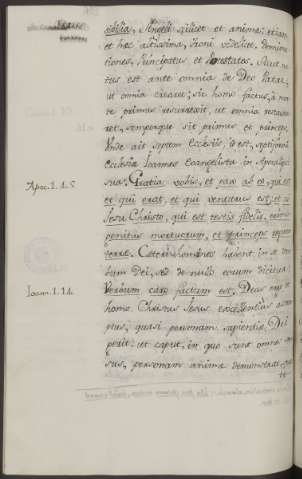 sibilia, Angeli scilicet et animae; etiam
et hec altissima, throni videlicet, Domina
tiones, Principatus et Potestates. Sicut na
tus est ante omnia de Deo Patre,
ut omnia crearet; sic homo factus, a mor
te primus resurrexit, ut omnia restaura
ret, semperque sit primus et princeps.
Unde ait septem Ecclesiis, id est, septiformi
Ecclesiae Ioannes Evangelista in Apocalipsi
sua: Gratia vobis, et pax ab eo, qui est
Apoc. 1. 4. 5
et qui erat, et qui venturus est; et a
Iesu Christo, qui est testis fidelis, primo
genitus mortuorum, et princeps regum
terrae. Caeteri homines habent in se ver
bum Dei, sed de nullo eorum dicitur:
Verbum caro factum est. Deus
Ioan. 1. 14.
homo Christus Iesus excellentius
quasi personam sapientiae Dei
ut caput, in quo sunt omnes sen
sus, personam animae demonstrat;